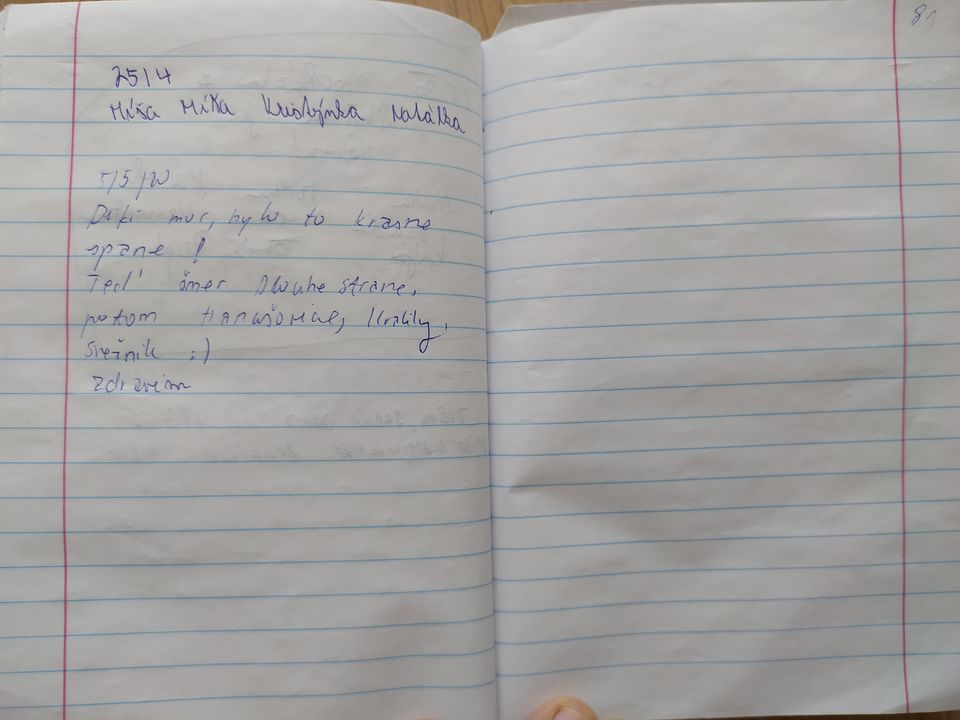 81
25/4
Míša Míša Kristýnka Natálka
7/5/20
Diki moc, bylo to krasne
spane !
Teď směr Dlouhe strane,
potom Hanušovice, Kraliky,
Snežnik ;)
Zdravim